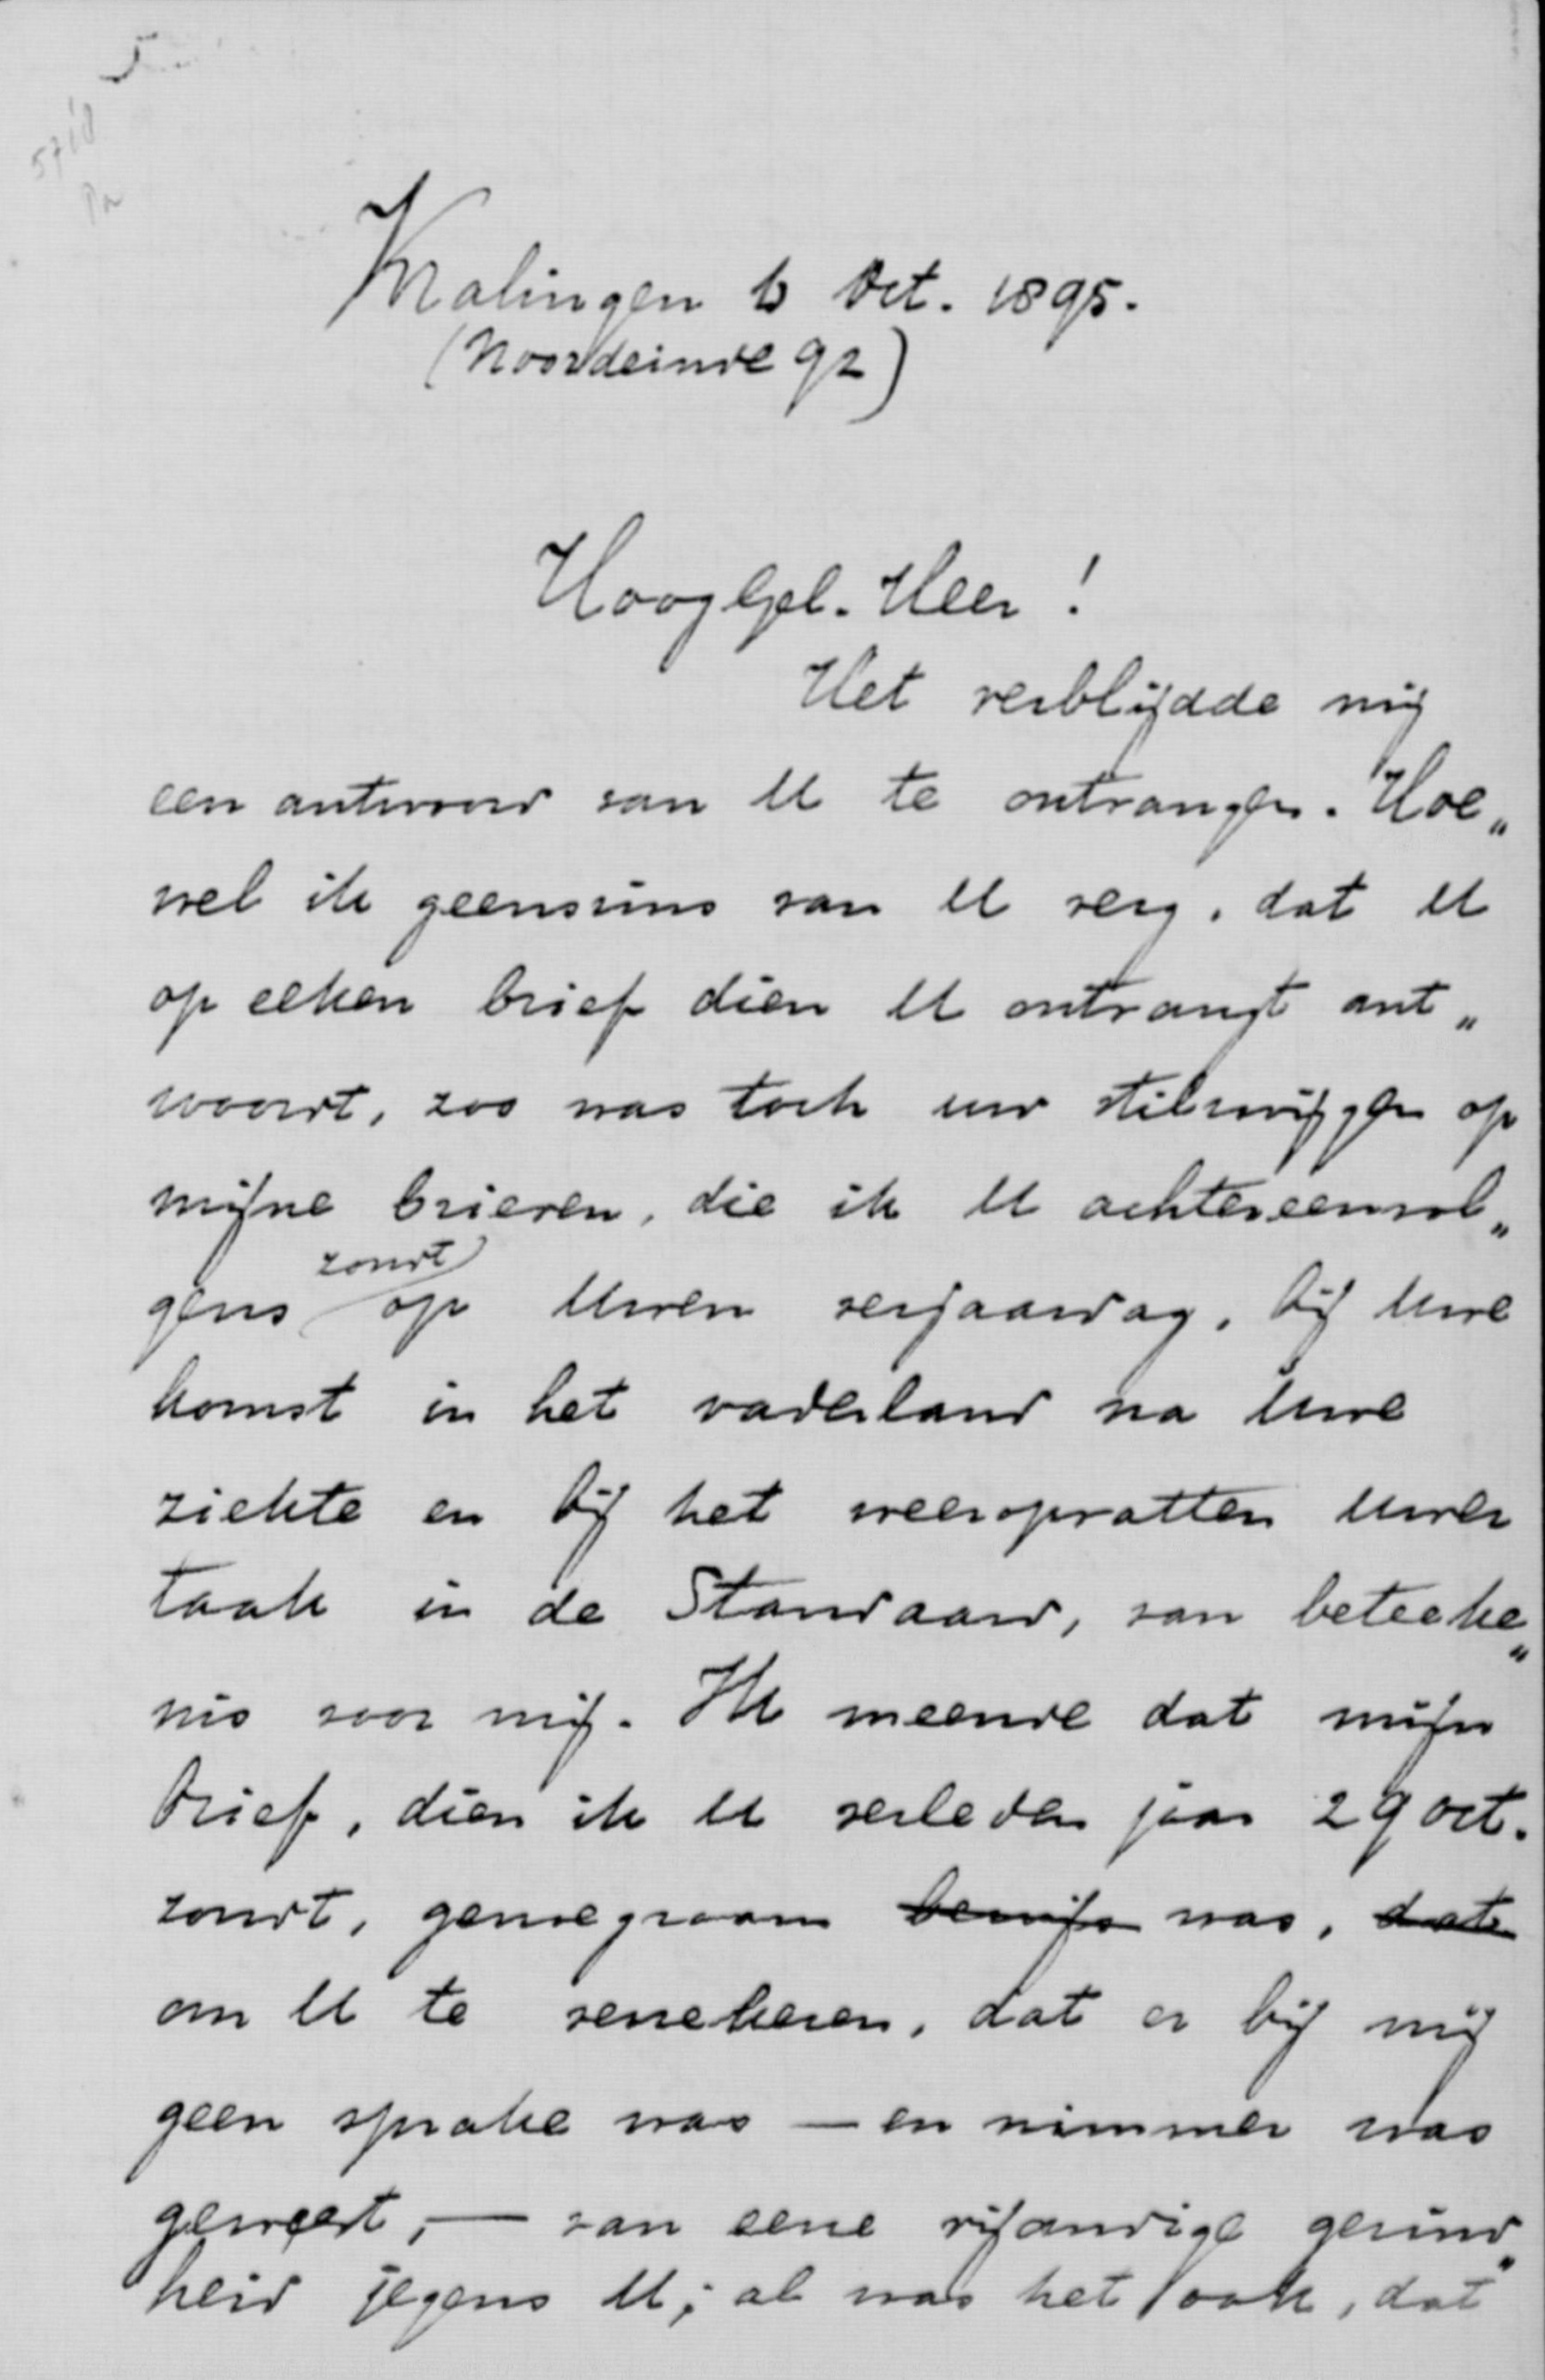 5
5718
Kralingen 6 Oct. 1895.
(Noordeinde 92)
HoogGel. Heer!
Het verblijdde mij
een antwoord van U te ontvangen. Hoe„
wel ik geenszins van U verg, dat U
op elken brief dien U ontvangt ant„
woordt, zoo was toch uw stilzwijgen op
mijne brieven, die ik U achtereenvol„
zondt
gens op Uwen verjaardag, bij Uwe
komst in het vaderland na Uwe
ziekte en bij het weeropvatten Uwer
taak in de Standaard, van beteeke„
nis voor mij. Ik meende dat mijn
brief, dien ik U verleden jaar 29 Oct.
zondt, genoegzaam bewijs was, dat
om U te verzekeren, dat er bij mij
geen sprake was — en nimmer was
geweest, — van eene vijandige gezind„
heid jegens U; al was het ook, dat